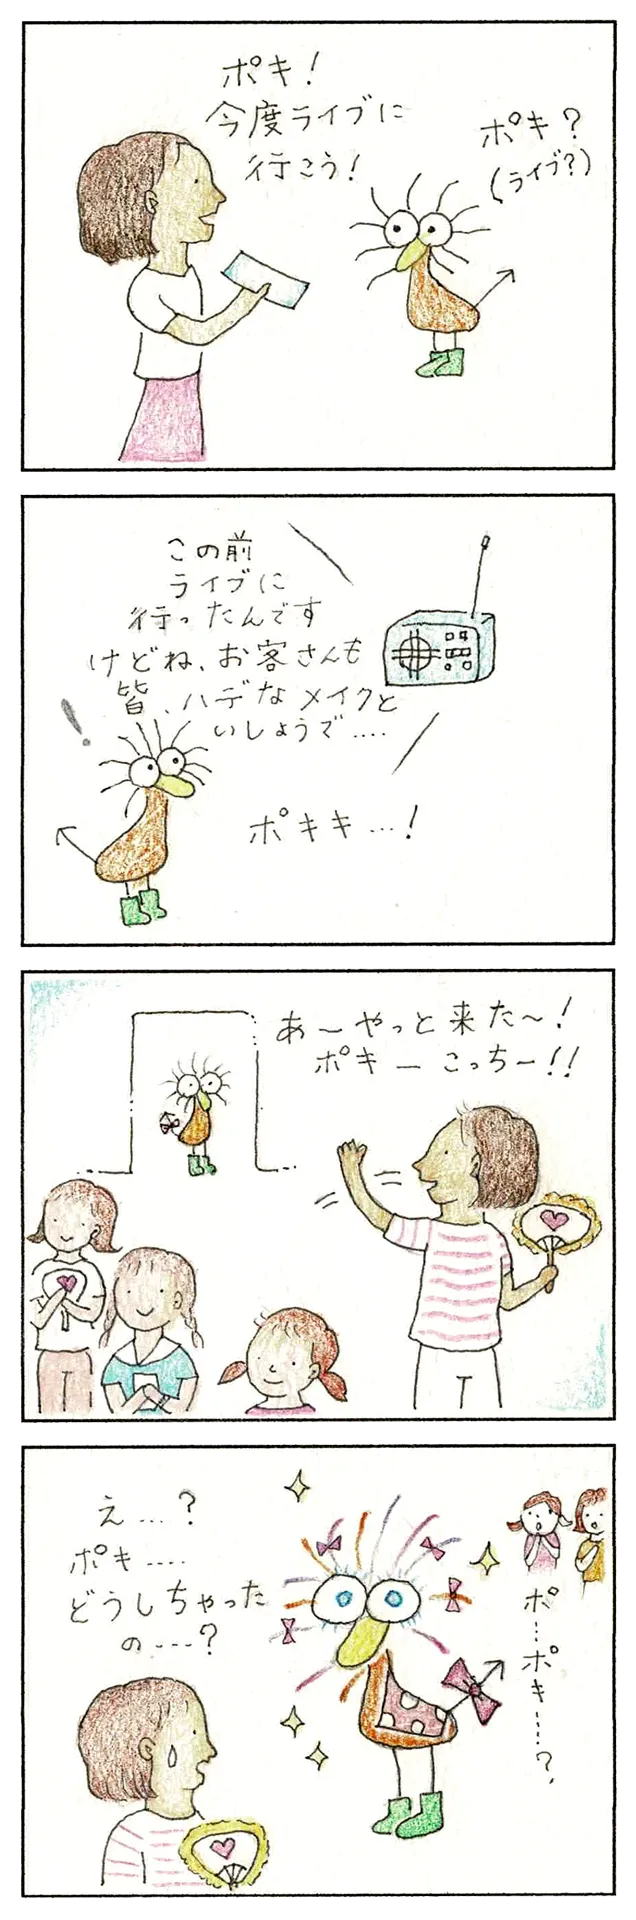 ポキ!
今度ライブに
行こう!
ポキ?
(ライブ?)
この前
ライブに
行ったんです
けどね、お客さんも
皆、ハデなメイクと
いしょうで....
!
ポキキ...!
あ〜やっと来た〜!
ポキー こっちー!!
え...?
ポキ....
どうしちゃった
の...?
ポ...ポキ...?